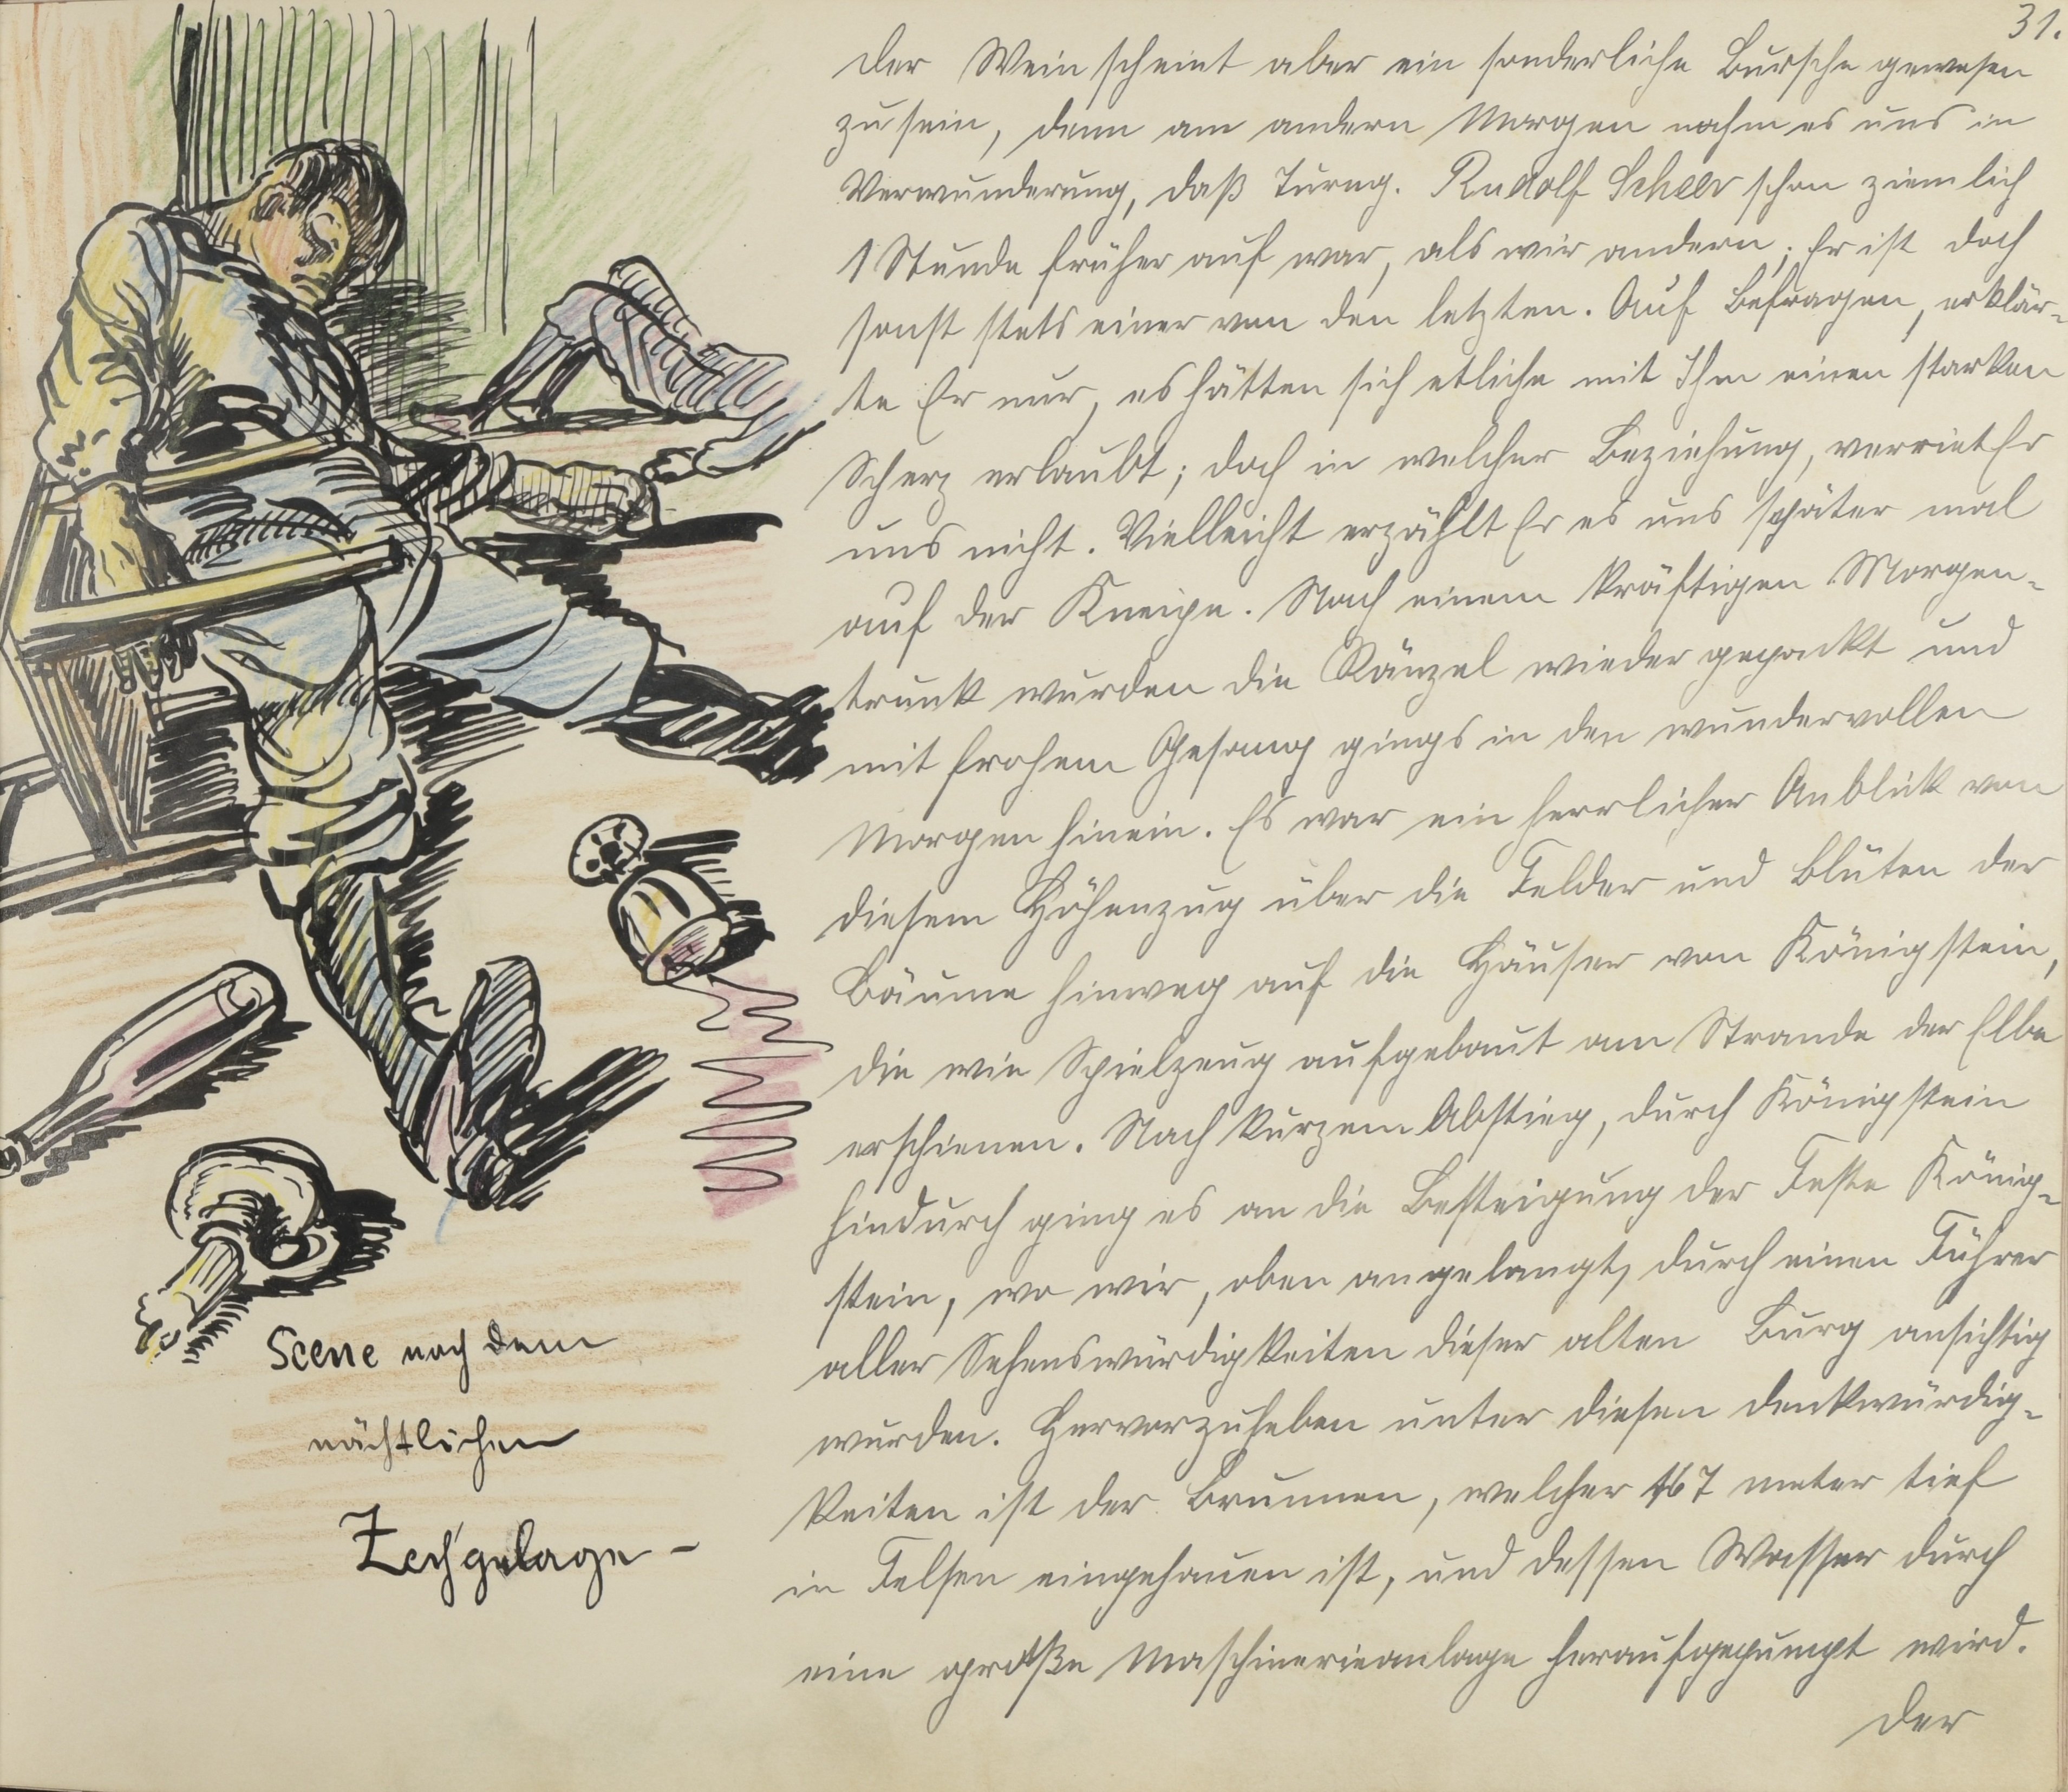 31.
der Wein scheint aber ein sonderliche Bursche gewesen
zu sein, denn am andern Morgen nahm es uns in
Verwunderung, daß Turng. Rudolf Scheer schon ziemlich
1 Stunde früher auf war, als wir andern; Er ist doch
sonst stets einer von den letzten. Auf Befragen, erklär-
te Er nur, es hätten sich etliche mit Ihm einen starken
Scherz erlaubt; doch in welcher Beziehung, verriet Er
uns nicht. Vielleicht erzählt Er es uns später mal
auf der Kneipe. Nach einem kräftigen Morgen-
trunk wurden die Ränzel wieder gepackt und
mit frohem Gesang gings in den wundervollen
Morgen hinein. Es war ein herrlicher Anblick von
diesem Höhenzug über die Felder und Blüten der
Bäume hinweg auf die Häuser von Königstein,
die wie Spielzeug aufgebaut am Strande der Elbe
erschienen. Nach kurzem Abstieg, durch Königstein
hindurch ging es an die Besteigung der Feste König-
stein, wo wir, oben angelangt, durch einen Führer
aller Sehenswürdigkeiten dieser alten Burg ansichtig
wurden. Hervorzuheben unter diesen denkwürdig-
keiten ist der Brunnen, welcher 167 meter tief
in Felsen eingehauen ist, und dessen Wasser durch
eine große Maschinerieanlage heraufgepumpt wird.
der
Scene nach dem
nächtlichen
Zechgelage -